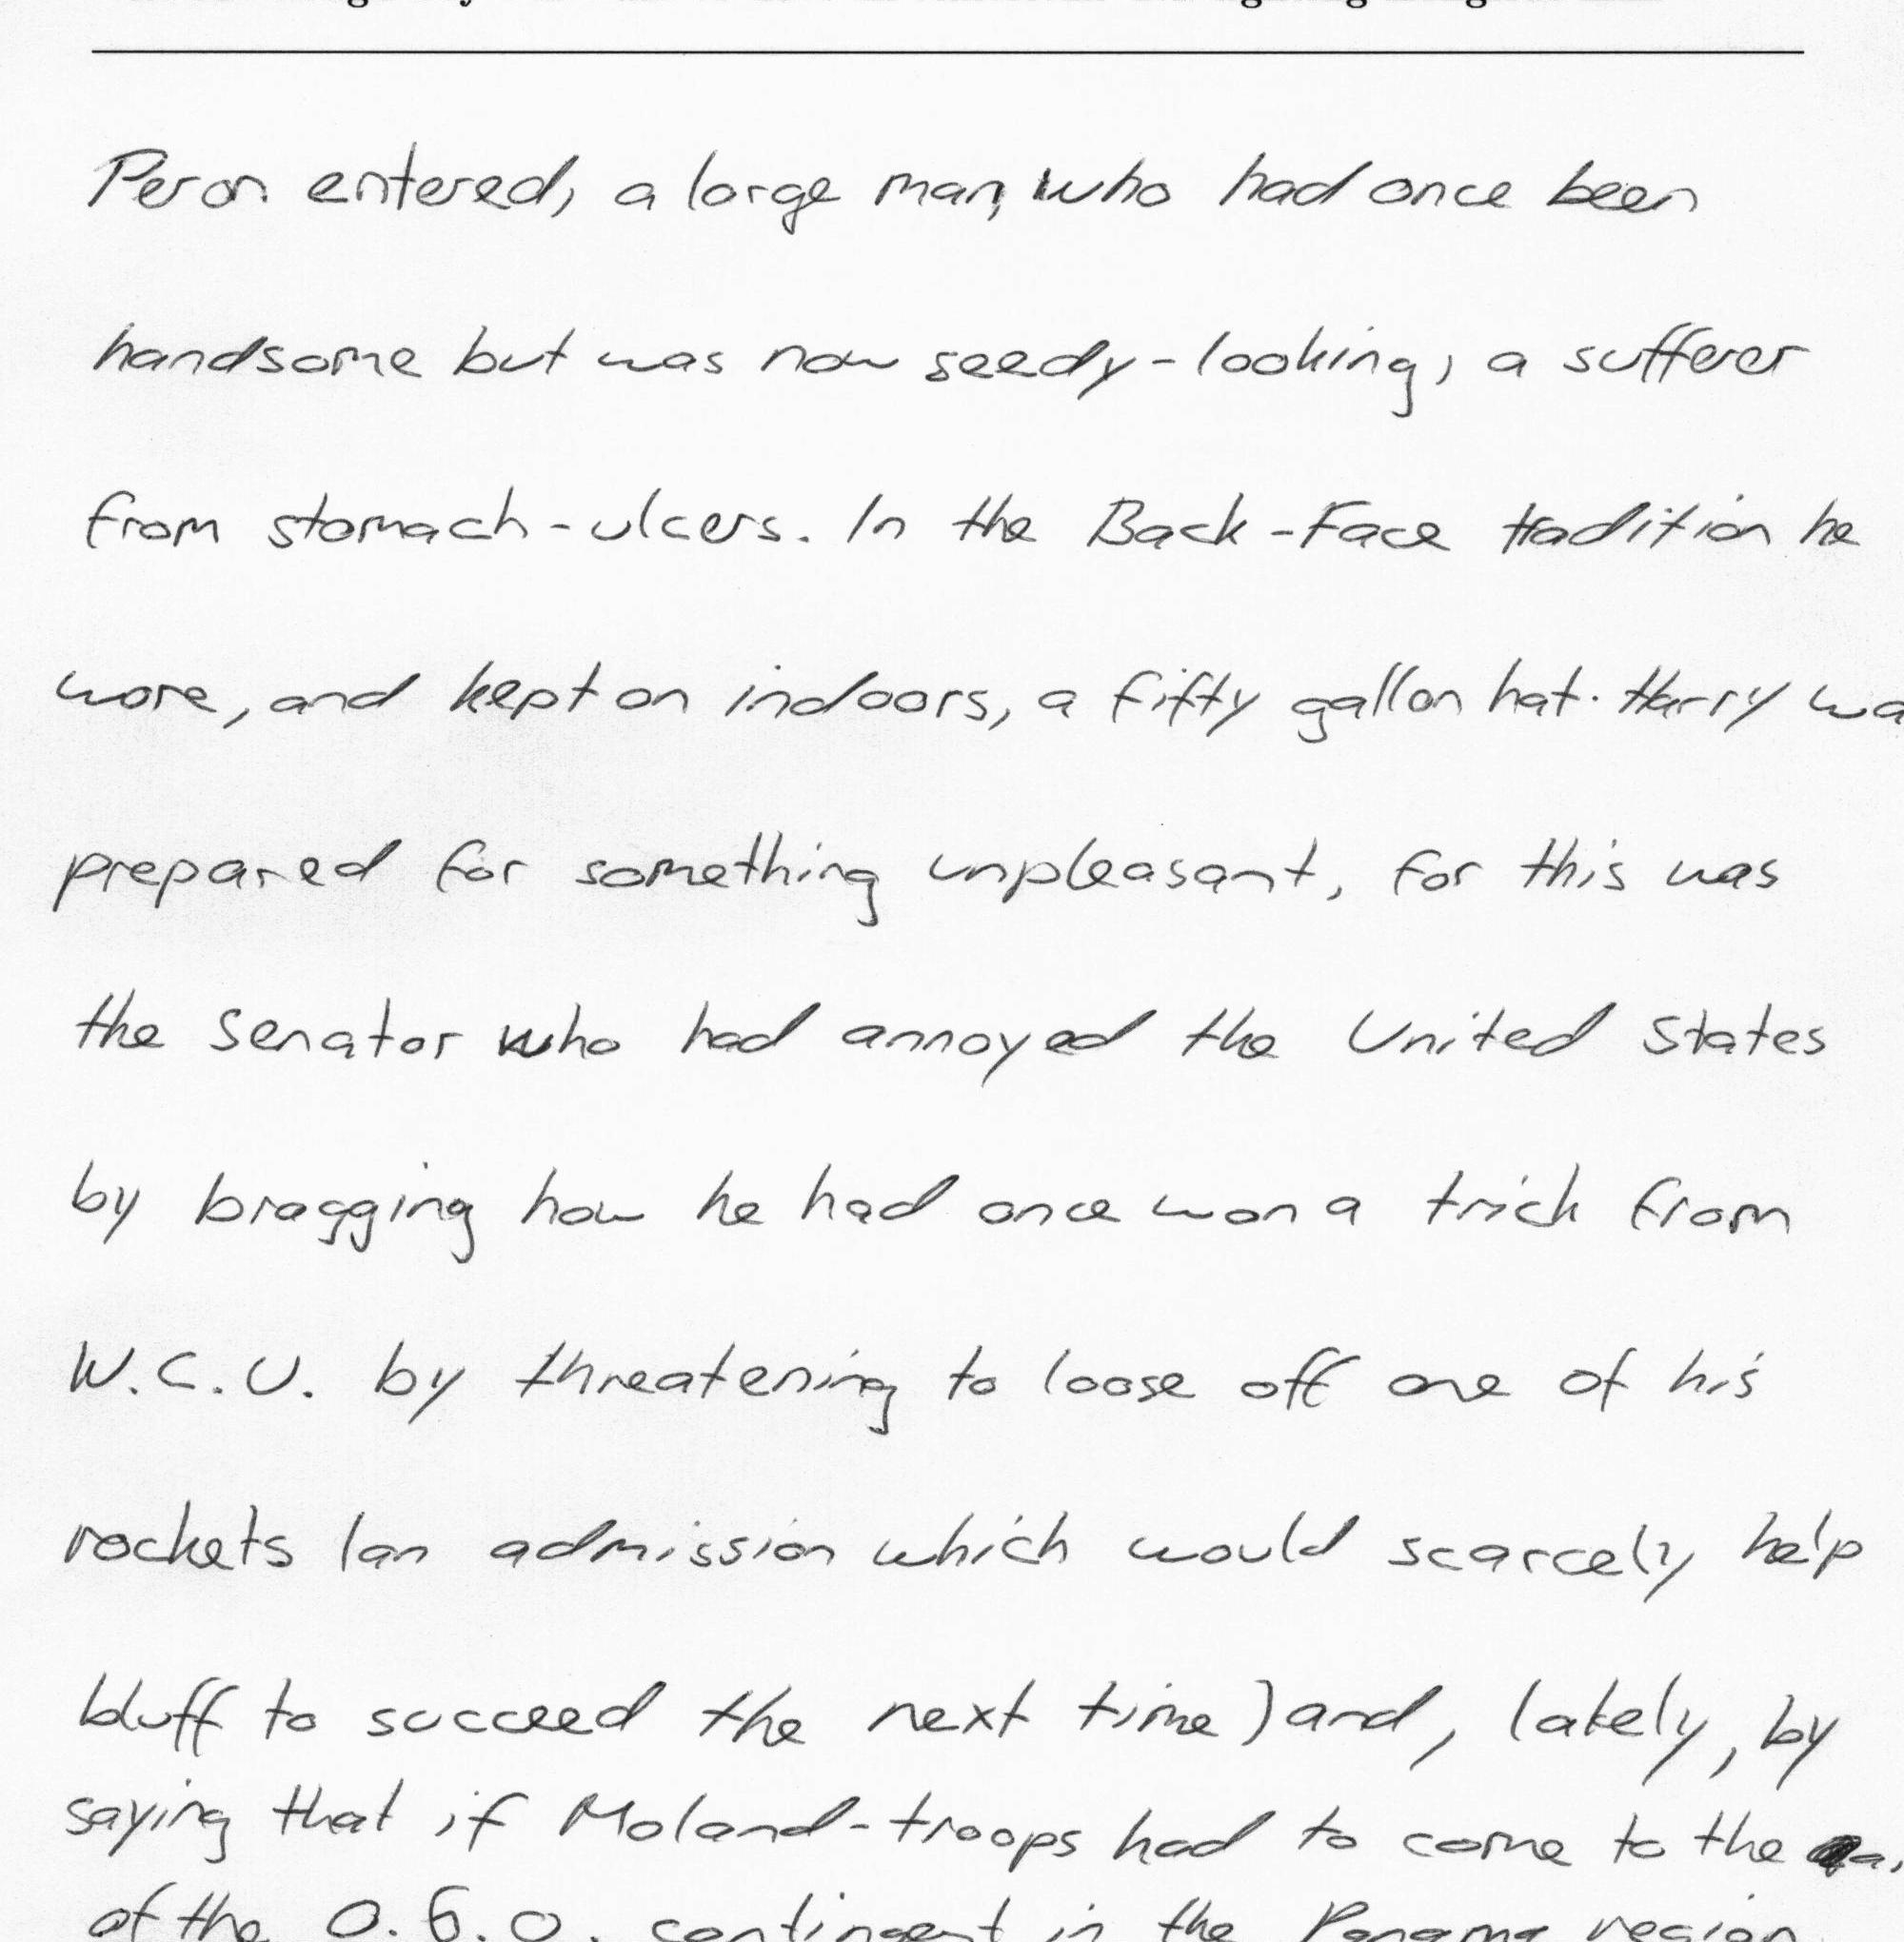 Peron entered, a large man, who had once been
handsome but was now seedy-looking, a sufferer
from stomach-ulcers. In the Back-Face tradition he
wore, and kept on indoors, a fifty gallon hat. Harry wa
prepared for something unpleasant, for this was
the Senator who had annoyed the United States
by bragging how he had once won a trick from
W.C.U. by threatening to loose off one of his
rockets (an admission which would scarcely help
bluff to succeed the next time) and, lately, by
saying that if Moland-troops had to come to the
of the O.G.O. contingent in the Panama region